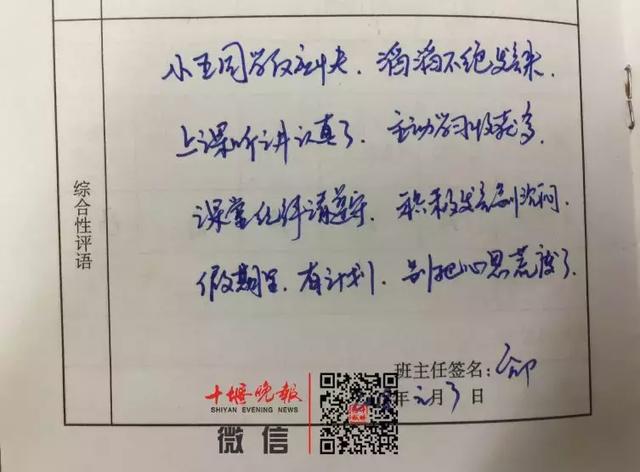 小王同学仅刻夫，滔滔不绝发言来，
上课听讲认真了，主动学习收获多，
课堂纪律请遵守，积极发言别沉闷，
假期里，有计划，别把心思荒废了。
综合性评语
班主任签名：
年元月 日
十堰晚报
SHIYAN EVENING NEWS
微信